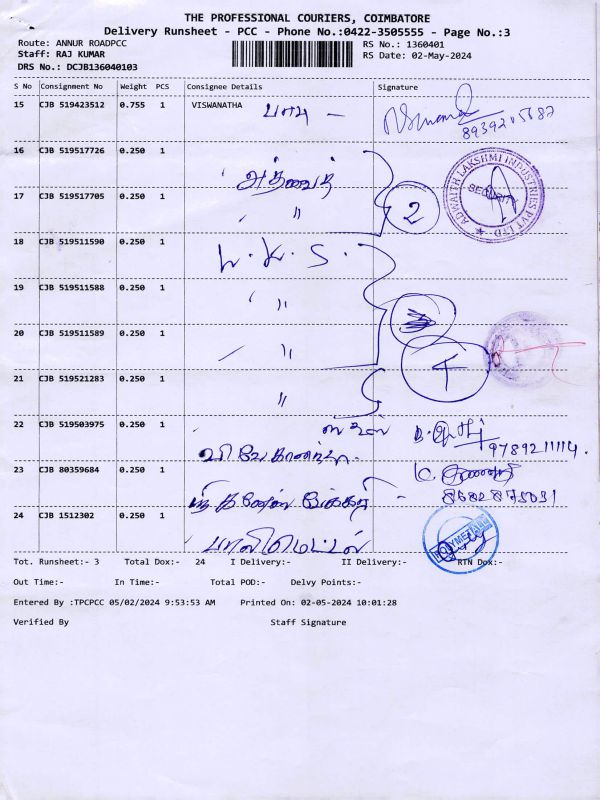 THE PROFESSIONAL COURIERS, COIMBATORE
Delivery Runsheet - PCC - Phone No.:0422-3505555 - Page No.:3
Route: ANNUR ROADPCC RS No.: 1360401
Staff: RAJ KUMAR RS Date: 02-May-2024
DRS No.: DCJB136040103
S No Consignment No Weight PCS Consignee Details Signature
15 CJB 519423512 0.755 1 VISWANATHA பாபு -
8939205687
16 CJB 519517726 0.250 1 அத்வைத்
ADWAITH LAKSHMI INDUSTRIES PVT LTD
SECURITY
17 CJB 519517705 0.250 1 " 2
18 CJB 519511590 0.250 1 L. K. S.
19 CJB 519511588 0.250 1 "
20 CJB 519511589 0.250 1 " 4
21 CJB 519521283 0.250 1 "
22 CJB 519503975 0.250 1
9789211114.
23 CJB 80359684 0.250 1
8682873031
24 CJB 1512302 0.250 1 பாலிமெட்டல்
POLYMETAL
Tot. Runsheet:- 3 Total Dox:- 24 I Delivery:- II Delivery:- RTN Dox:-
Out Time:- In Time:- Total POD:- Delvy Points:-
Entered By :TPCPCC 05/02/2024 9:53:53 AM Printed On: 02-05-2024 10:01:28
Verified By Staff Signature